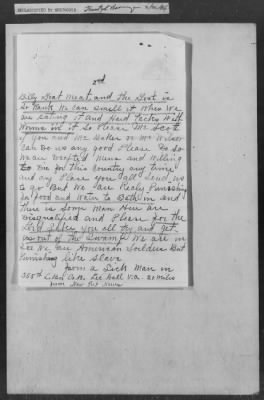 DECLASSIFIED BY AUTHORITY
2nd
Billy Goat meat and the Goat is
So Rank We Can smell it When We
are eating it and Hard Tacks With
Worms in it So Please Mr Scott
if you and Mr Baker or Mr Wilson
Can Do us any good Please Do So
We are Drafted Mens and Willing
to Die for this Country any time
and any Place you all Send us
to go But We are Realy Punishing
for food and Water to Bath in and
There is Some Man Here are
Disqualified and Please for the
Lord Sakes you all try and get
us out of the Swamp We are in
See We are American Soldiers But
Punishing like Slave
from a Sick Man in
Lee Hall Va. 20 miles
from New Port News